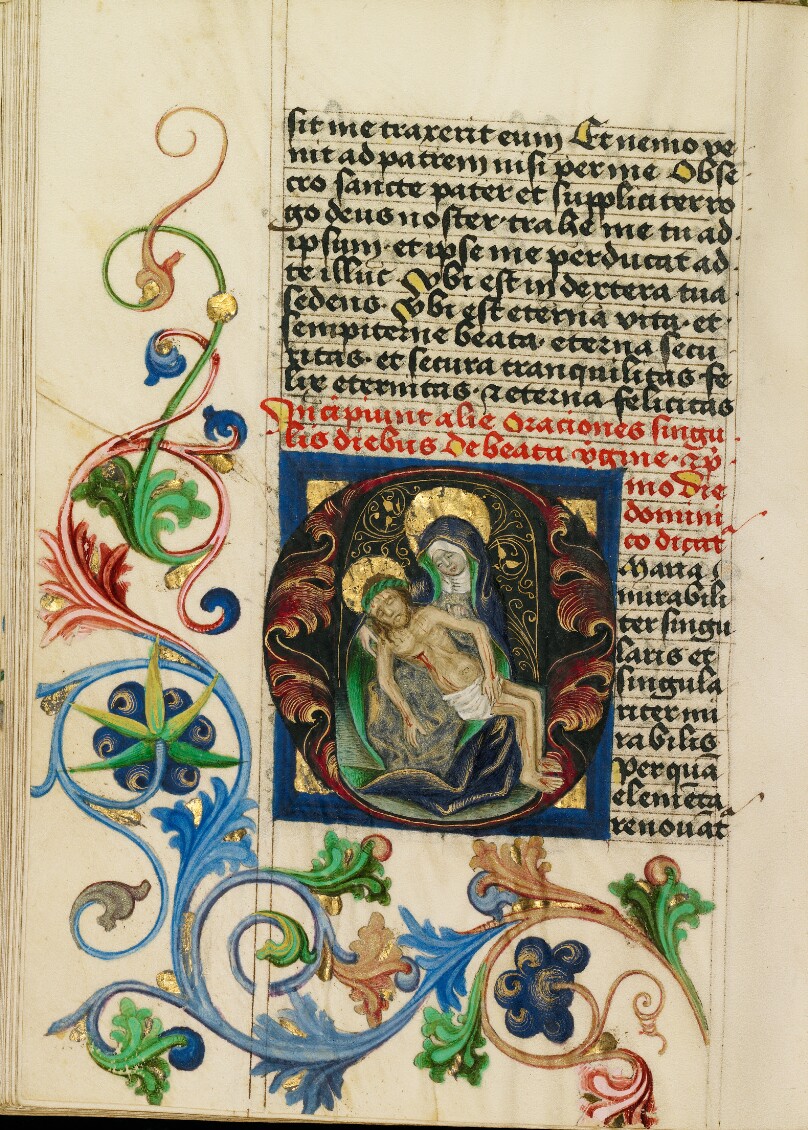 sit me traxerit eum Et nemo ve
nit ad patrem nisi per me Obse
cro sancte pater et suppliciter ro
go deus noster trahe me tu ad
ipsum · et ipse me perducat ad
te illuc · Vbi est in dextera tua
sedens · Vbi est eterna vita · et
sempiterne beata · eterna secu
ritas · et secura tranquilitas · fe
lix eternitas · z eterna felicitas
Incipiunt alie Oraciones singu
lis diebus de beata v̾gine · z p̾
mo die
domini
co dicat᷑
Maria
mirabili
ter singu
laris et
singula
riter mi
rabilis
per quā
elemēta
renouāt᷑